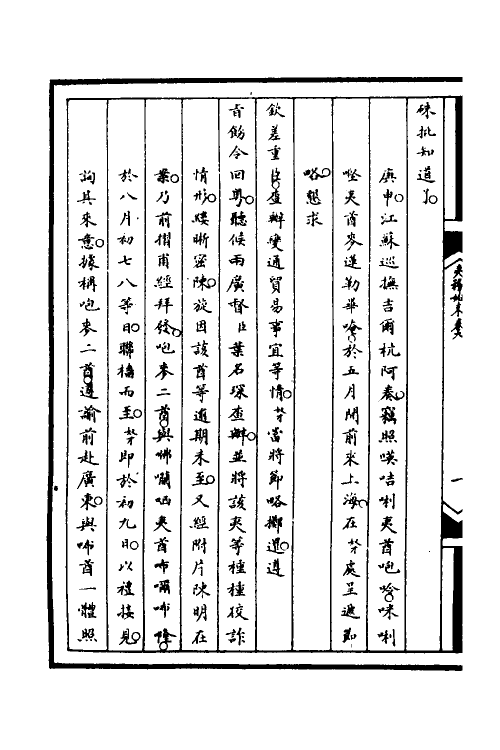 硃批知道了。
庚申江蘇巡撫吉爾杭阿奏。竊照㗸咭唎夷酋咆唥。咪唎
㗸夷酋麥蓮勒畢唥。於五月閒前來上海。在奴才處呈遞節
略。懇求
欽差重臣。查辦變通貿易事宜等情。奴才當將節略擲還。遵
旨飭令回粵。聽候兩廣督臣葉名琛查辦。並將該夷等種種狡詐
情形。縷晰密陳。旋因該酋等逾期未至。又經附片陳明在
案。乃前摺甫經拜發。咆麥二酋。與咈囒哂夷酋咘嚼咘隆。
於八月初七八等日。聯檣而至。奴才即於初九日。以禮接見。
詢其來意。據稱咆麥二酋。遵諭前赴廣東。與咘酋一體照
夷務始末卷九
一